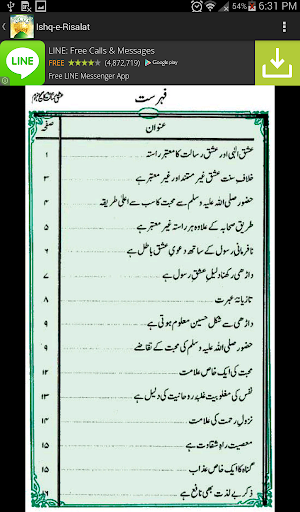 6:31 PM
Ishq-e-Risalat
LINE: Free Calls & Messages
FREE ★★★★★ (4,872,719) Google play
Free LINE Messenger App
LINE
فہرست
عنوان صفحہ
عشق الٰہی اور عشق رسالت کا معتبر راستہ ۱
خلافِ سنت عشق غیر مستند اور غیر معتبر ہے ۳
حضور صلی اللہ علیہ وسلم سے محبت کا سب سے اعلیٰ طریقہ ۴
طریقِ صحابہ کے علاوہ ہر راستہ غیر معتبر ہے ۵
نافرمانیِ رسول کے ساتھ دعویٰ عشق باطل ہے ۶
داڑھی رکھنا دلیلِ عشقِ رسول ہے ۷
تازیانۂ عبرت ۸
داڑھی سے شکل حسین معلوم ہوتی ہے ۹
حضور صلی اللہ علیہ وسلم کی محبت کے تقاضے ۹
محبت کی ایک خاص علامت ۱۲
نفس کی مغلوبیت غلبۂ روحانیت کی دلیل ہے ۱۳
نزولِ رحمت کی علامت ۱۴
معصیت راہِ شقاوت ہے ۱۵
گناہ کا ایک خاص عذاب ۱۵
ذکرِ بے لذت بھی نافع ہے ۱۶